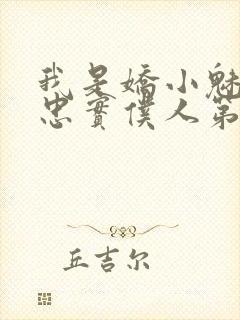 我是嬌小魅
忠實僕人第
丘吉尔